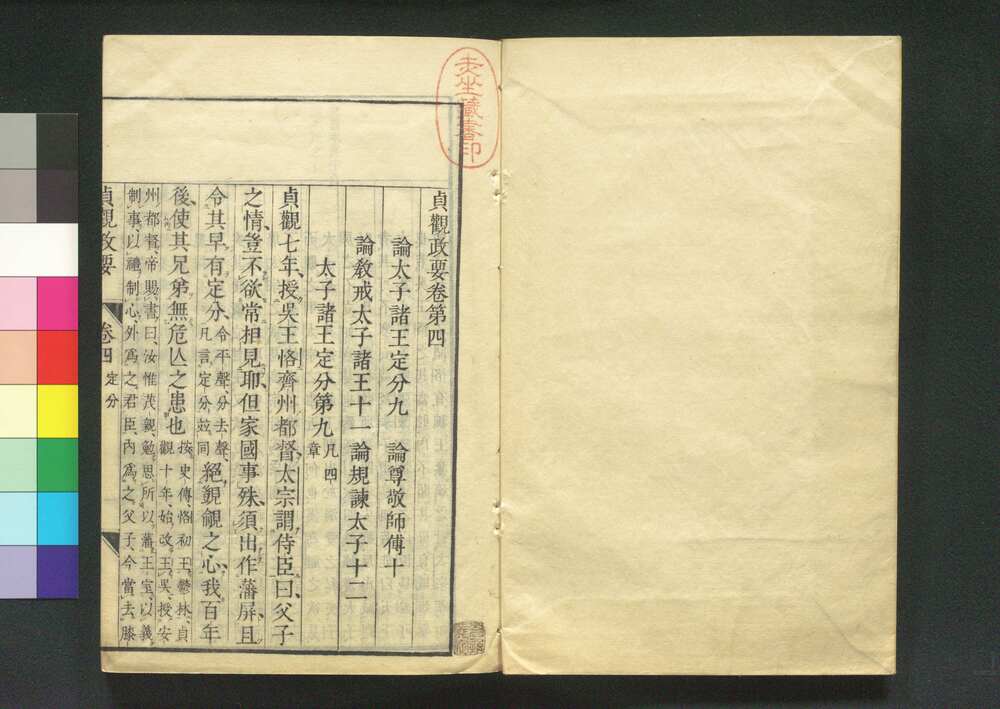 貞觀政要卷第四
論太子諸王定分九　論尊敬師傅十
論教戒太子諸王十一　論規諫太子十二
太子諸王定分第九凡四章
貞觀七年、授吳王恪齊州都督、太宗謂侍臣曰、父子
之情、豈不欲常相見耶、但家國事殊、須出作藩屏、且
令其早有定分、令平聲、分去聲、凡言定分竝同絕覬覦之心、我百年
後、使其兄弟無危亾之患也按史傳、恪初王鬱林、貞觀十年、始改王吳、授安
州都督、帝賜書曰、汝惟茂親、勉思所以藩王室、以義
制事、以禮制心、外爲之君臣、內爲之父子、今當去膝
貞觀政要　卷四　定分
藏書印